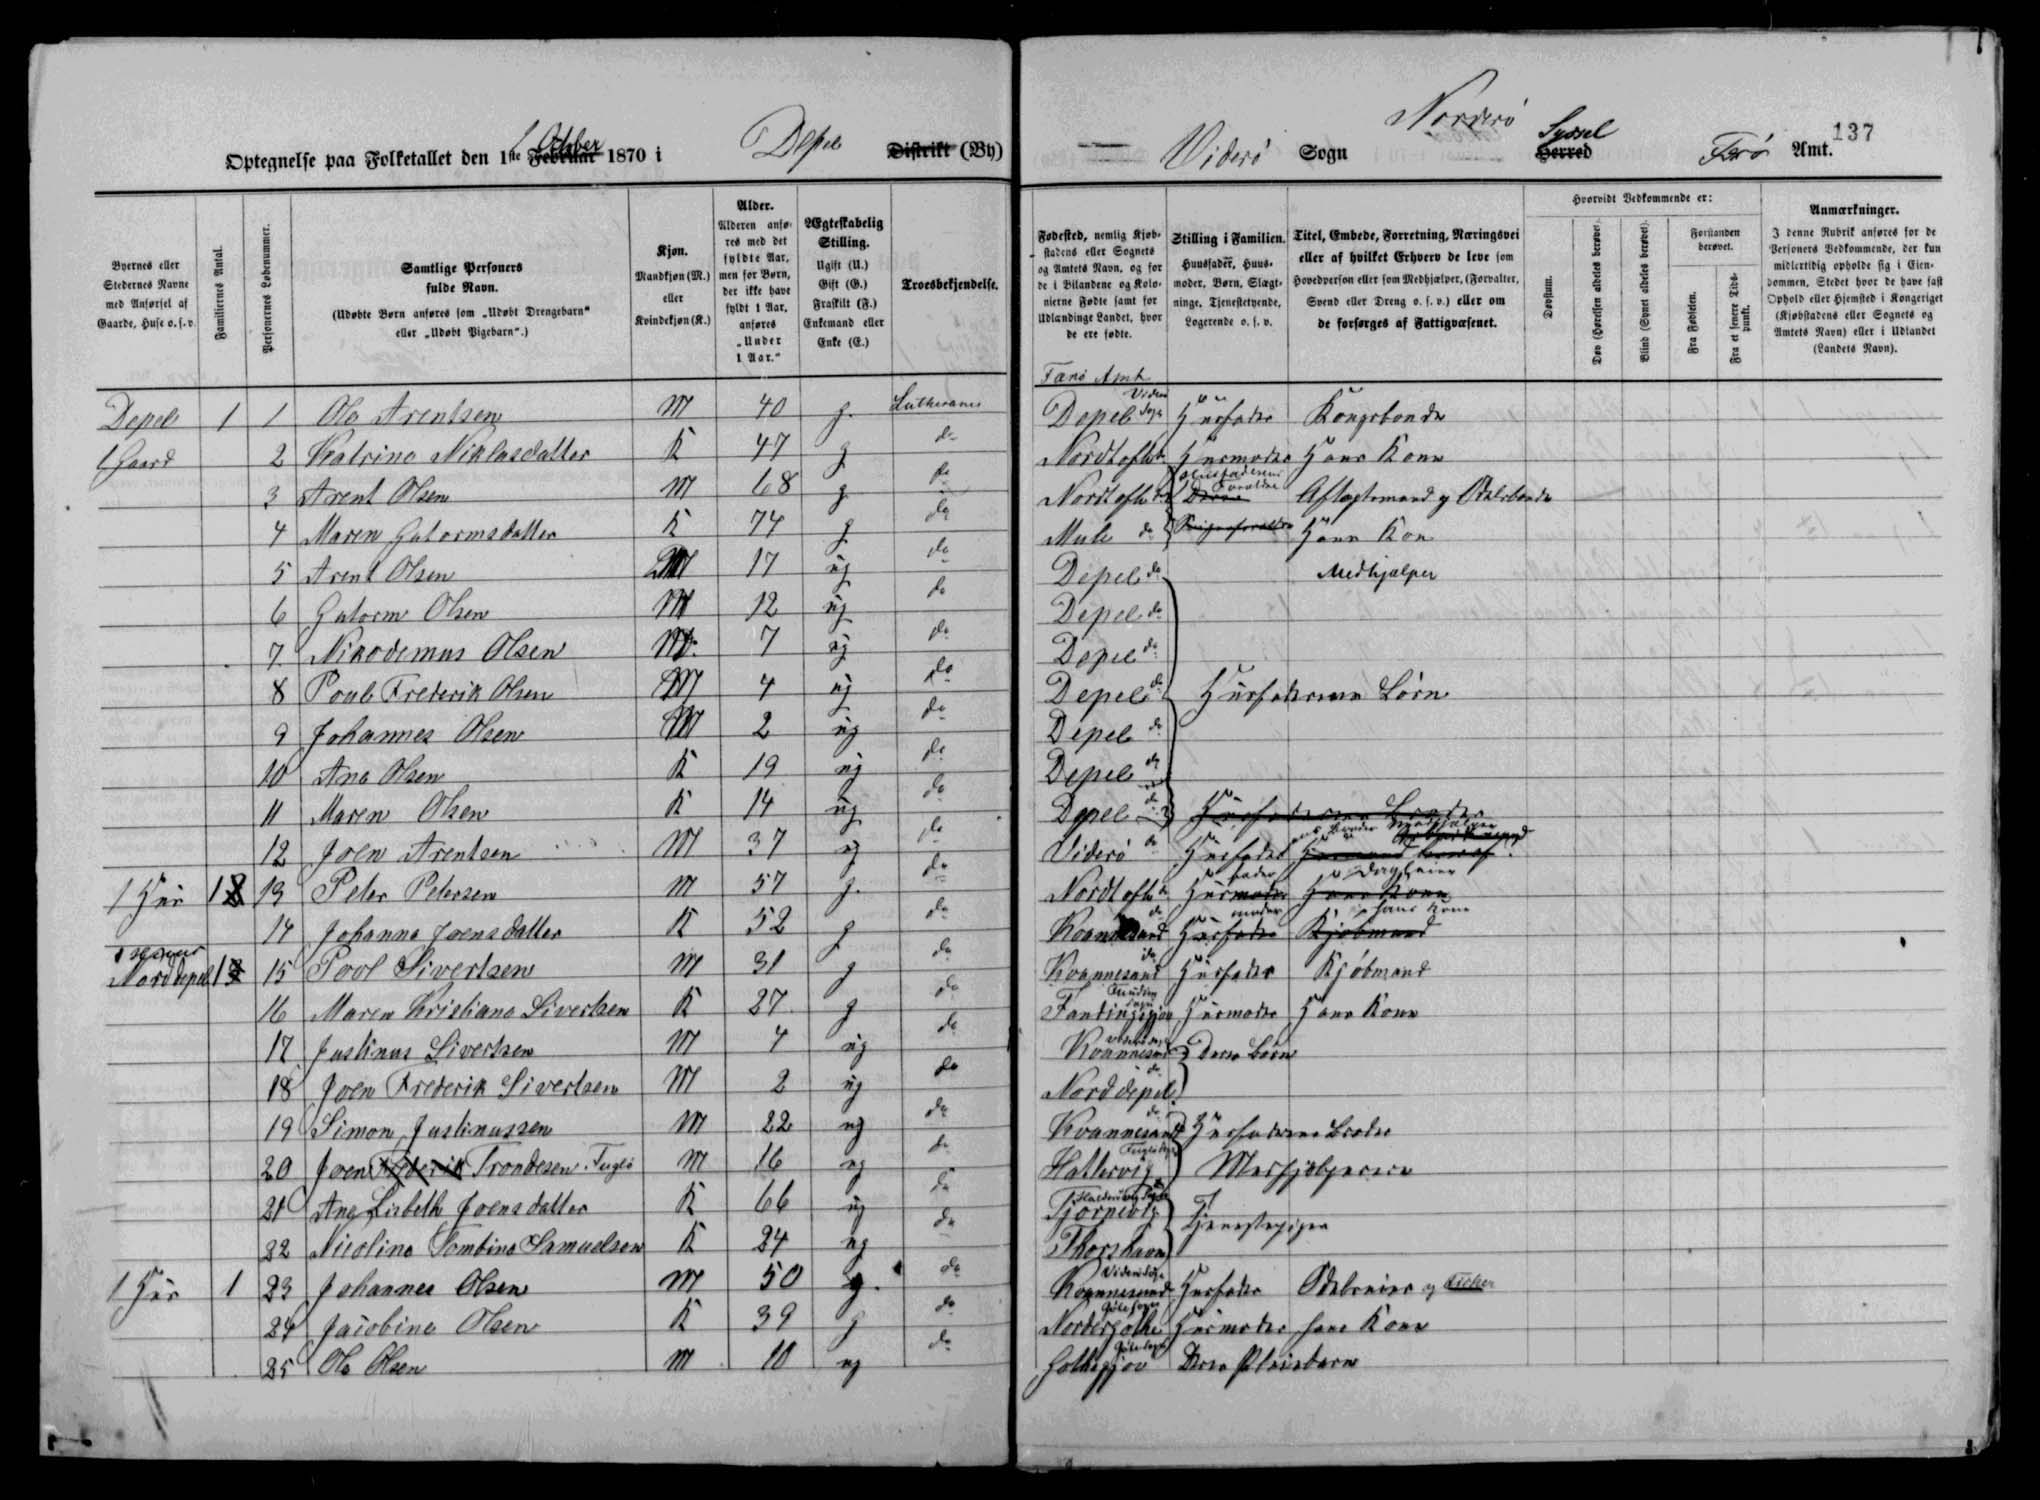 137
Optegnelse paa Folketallet den 1ste Februar 1870 i Depel Distrikt (By)
October
Viderø Sogn Norderø Herred Færø Amt.
Syssel
Byernes eller Stedernes Navne med Anførsel af Gaarde, Huse o. s. v.
Familiernes Antal.
Personernes Løbenummer.
Samtlige Personers fulde Navn.
(Udøbte Børn anføres som „Udøbt Drengebarn“ eller „Udøbt Pigebarn“.)
Kjøn.
Mandkjøn (M.) eller Kvindekjøn (K.)
Alder.
Alderen anføres med det fyldte Aar, men for Børn, der ikke have fyldt 1 Aar, anføres „Under 1 Aar.“
Ægteskabelig Stilling.
Ugift (U.) Gift (G.) Fraskilt (F.) Enkemand eller Enke (E.)
Troesbekjendelse.
Fødested, nemlig Kjøbstadens eller Sognets og Amtets Navn, og for de i Bilandene og Kolonierne Fødte samt for Udlændinge Landet, hvor de ere fødte.
Stilling i Familien.
Huusfader, Huusmoder, Børn, Slægtninge, Tjenestetyende, Logerende o. s. v.
Titel, Embede, Forretning, Næringsvei eller af hvilket Erhverv de leve som Hovedperson eller som Medhjælper, (Forvalter, Svend eller Dreng o. s. v.) eller om de forsørges af Fattigvæsenet.
Hvorvidt Vedkommende er:
Døvstum.
Døv (Hørelsen aldeles berøvet).
Blind (Synet aldeles berøvet).
Forstanden berøvet.
Fra Fødselen.
Fra et senere Tidspunkt.
Anmærkninger.
I denne Rubrik anføres for de Personers Vedkommende, der kun midlertidig opholde sig i Eiendommen, Stedet hvor de have fast Ophold eller Hjemsted i Kongeriget (Kjøbstadens eller Sognets og Amtets Navn) eller i Udlandet (Landets Navn).
Færø Amt
Depel 1 1 Ole Arentsen M 40 g. Lutheraner Depel Viderø Sogn Husfader Kongsbonde
1 Gaard 2 Katrine Niklasdatter K 47 g do Nordtofte do Husmoder Hans Kone
3 Arent Olsen M 68 g do Nordtofte do Husfaderens Forældre Aftægtsmand og Odelsbonde
4 Maren Gutormsdatter K 74 g do Mule do Hans Kone
5 Arent Olsen M 17 ug do Depel do Medhjælper
6 Gutorm Olsen M 12 ug do Depel do
7 Nikodemus Olsen M. 7 ug do Depel do
8 Poul Frederik Olsen M 4 ug do Depel do Husfaderens Børn
9 Johannes Olsen M 2 ug do Depel do
10 Ane Olsen K 19 ug do Depel do
11 Maren Olsen K 14 ug do Depel do Husfaderens Broder
12 Joen Arentsen M 37 ug do Viderø do Husfaderens Broder Medhjælper
1 Hus 1 13 Peter Petersen M 57 g. do Nordtofte do Husfader Daglleier
14 Johanne Joensdatter K 52 g do Kvannesund do Husmoder Hans Kone Kjøbmand
Norddepel 1 15 Povl Sivertsen M 31 g do Kvannesund do Husfader Kjøbmand
16 Maren Kristiane Sivertsen K 27 g do Husmoder Hans Kone
17 Justinus Sivertsen M 4 ug do Kvannesund Deres Børn
18 Joen Frederik Sivertsen M 2 ug do Norddepel do
19 Simon Justinussen M 22 ug do Kvannesund do Husfaderens Broder
20 Joen Frederik Trondesen Fuglø M 16 ug do Hattervig Medhjælpere
21 Ane Lisbeth Joensdatter K 66 ug do Tjørnevig Tjenestepiger
22 Nicoline Tombine Samuelsen K 24 ug do Thorshavn
1 Hus 1 23 Johannes Olsen M 50 g. do Kvannesund Viderø Sogn Husfader Odelseier og Fisker
24 Jacobine Olsen K 39 g do Nordergøthe Gøte Sogn Husmoder hans Kone
25 Ole Olsen M 10 ug do Gøthegjov Gøte Sogn Deres Pleiebarn